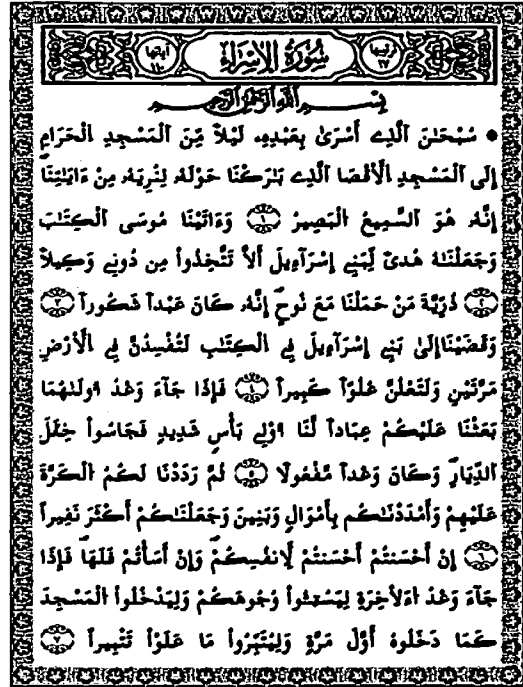 ترتيبها ١٧ سُورَةُ الإِسْرَاءِ آياتها ١١٠
بِسْمِ اللَّهِ الرَّحْمَٰنِ الرَّحِيمِ
سُبْحَٰنَ اَلَّذِے أَسْرَىٰ بِعَبْدِهِۦ لَيْلاً مِّنَ اَلْمَسْجِدِ اِلْحَرَامِ
إِلَى اَلْمَسْجِدِ اِلْأَقْصَا اَلَّذِے بَٰرَكْنَا حَوْلَهُۥ لِنُرِيَهُۥ مِنْ ءَايَٰتِنَا
إِنَّهُۥ هُوَ اَلسَّمِيعُ اُلْبَصِيرُ ١ وَءَاتَيْنَا مُوسَى اَلْكِتَٰبَ
وَجَعَلْنَٰهُ هُدىً لِّبَنِے إِسْرَآءِيلَ أَلاَّ تَتَّخِذُواْ مِن دُونِے وَكِيلاً
٢ ذُرِّيَّةَ مَنْ حَمَلْنَا مَعَ نُوحٍ إِنَّهُۥ كَانَ عَبْداً شَكُوراً ٣
وَقَضَيْنَا إِلَىٰ بَنِے إِسْرَآءِيلَ فِے اِلْكِتَٰبِ لَتُفْسِدُنَّ فِے اِلْأَرْضِ
مَرَّتَيْنِ وَلَتَعْلُنَّ عُلُوّاً كَبِيراً ٤ فَإِذَا جَآءَ وَعْدُ أُولَىٰهُمَا
بَعَثْنَا عَلَيْكُمْ عِبَاداً لَّنَا أُوْلِے بَأْسٍ شَدِيدٍ فَجَاسُواْ خِلَٰلَ
اَلدِّيَارِ وَكَانَ وَعْداً مَّفْعُولاً ٥ ثُمَّ رَدَدْنَا لَكُمُ اُلْكَرَّةَ
عَلَيْهِمْ وَأَمْدَدْنَٰكُم بِأَمْوَالٍ وَبَنِينَ وَجَعَلْنَٰكُمْ أَكْثَرَ نَفِيراً
٦ إِنْ أَحْسَنتُمْ أَحْسَنتُمْ لِأَنفُسِكُمْ وَإِنْ أَسَأْتُمْ فَلَهَا فَإِذَا
جَآءَ وَعْدُ اُلَاخِرَةِ لِيَسُۥٓـُٔواْ وُجُوهَكُمْ وَلِيَدْخُلُواْ اُلْمَسْجِدَ
كَمَا دَخَلُوهُ أَوَّلَ مَرَّةٍ وَلِيُتَبِّرُواْ مَا عَلَوْاْ تَتْبِيراً ٧